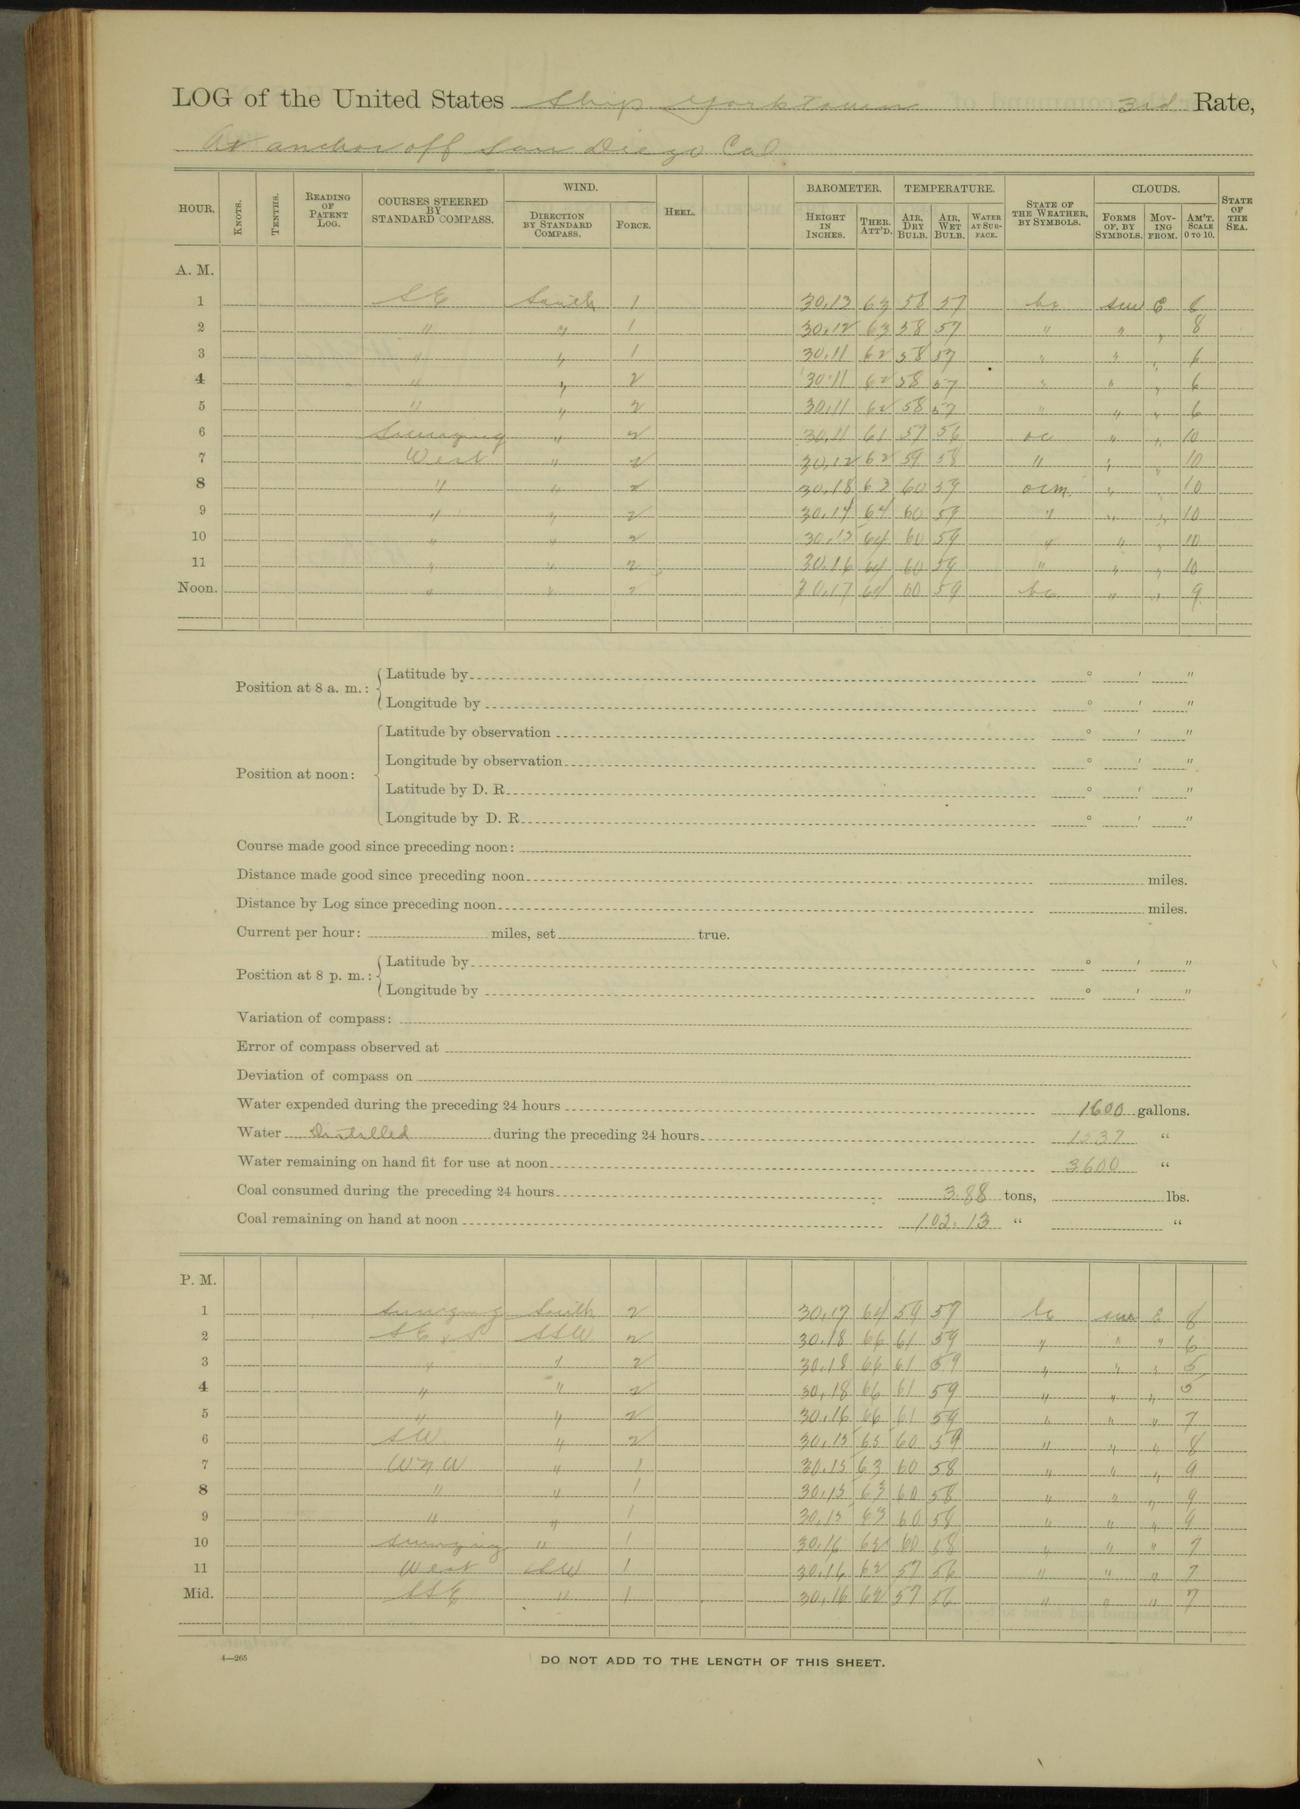 LOG of the United States Ship Yorktown 3rd Rate,
At anchor off San Diego Cal
HOUR. KNOTS. TENTHS. READING OF PATENT LOG. COURSES STEERED BY STANDARD COMPASS. WIND. DIRECTION BY STANDARD COMPASS. FORCE. HEEL. BAROMETER. HEIGHT IN INCHES. THER. ATT'D. TEMPERATURE. AIR, DRY BULB. AIR, WET BULB. WATER AT SURFACE. STATE OF THE WEATHER, BY SYMBOLS. CLOUDS. FORMS OF, BY SYMBOLS. MOVING FROM. AM'T. SCALE 0 TO 10. STATE OF THE SEA.
A. M.
1 SE South 1 30.13 63 58 57 bc E 8
2 " " 1 30.12 63 58 57 " " " 8
3 " " 1 30.11 62 58 57 " " " 6
4 " " 2 30.11 62 58 57 " " " 6
5 " " 2 30.11 62 58 57 " " " 6
6 Swinging " 2 30.11 61 57 56 oc " " 10
7 West " 2 30.12 62 59 58 " " " 10
8 " " 2 30.18 63 60 59 ocm " " 10
9 " " 2 30.14 64 60 59 " " " 10
10 " " 2 30.15 64 60 59 " " " 10
11 " " 2 30.16 64 60 59 " " " 10
Noon. " " 2 30.17 64 60 59 bc " " 9
Position at 8 a. m.: Latitude by ° ' "
Longitude by ° ' "
Position at noon: Latitude by observation ° ' "
Longitude by observation ° ' "
Latitude by D. R. ° ' "
Longitude by D. R. ° ' "
Course made good since preceding noon:
Distance made good since preceding noon miles.
Distance by Log since preceding noon miles.
Current per hour: miles, set true.
Position at 8 p. m.: Latitude by ° ' "
Longitude by ° ' "
Variation of compass:
Error of compass observed at
Deviation of compass on
Water expended during the preceding 24 hours 1600 gallons.
Water Distilled during the preceding 24 hours 1537 "
Water remaining on hand fit for use at noon 3600 "
Coal consumed during the preceding 24 hours 3.88 tons, lbs.
Coal remaining on hand at noon 102.13 " "
P. M.
1 Swinging South 2 30.17 64 59 57 bc E 8
2 SE x S SSW 2 30.18 66 61 59 " " " 6
3 " " 2 30.18 66 61 59 " " " 5
4 " " 2 30.18 66 61 59 " " " 5
5 " " 2 30.16 66 61 59 " " " 7
6 SW " 2 30.15 65 60 59 " " " 8
7 WNW " 1 30.15 63 60 58 " " " 9
8 " " 1 30.15 63 60 58 " " " 9
9 " " 1 30.15 63 60 58 " " " 9
10 Swinging " 1 30.16 62 60 58 " " " 7
11 West SW 1 30.16 62 57 56 " " " 7
Mid. SSE " 1 30.16 62 57 56 " " " 7
4—265
DO NOT ADD TO THE LENGTH OF THIS SHEET.